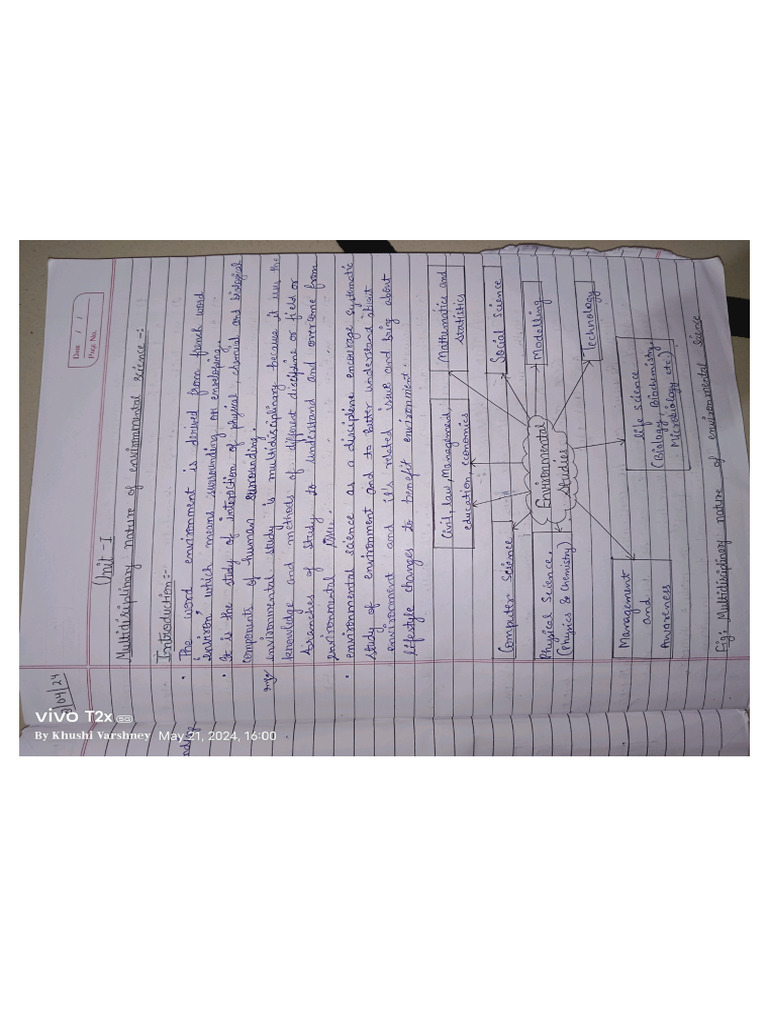 Date / /
Page No.
3/04/24
Unit - I
Multidisciplinary nature of environmental science -:
Introduction:-
• The word environment is derived from french word
'environ', which means surrounding or enveloping.
• It is the study of interaction of physical, chemical and biological
components of human surrounding.
environmental study is multidisciplinary because it uses the
knowledge and methods of different discipline or field or
branches of study to understand and overcome from
environmental
• environmental science as a discipline encourage systematic
study of environment and to better understand about
environment and it's related issues and bring about
lifestyle changes to benefit environment.
Civil, law, Management,
education, economics
Mathematics and
statistics
Computer Science
Social science
Physical Science,
(Physics & Chemistry)
Environmental
Studies
Modelling
Technology
Management
and
Awareness
life science
(Biology, Biochemistry
Microbiology etc)
Fig: Multidisciplinary nature of environmental science
vivo T2x 5G
By Khushi Varshney May 21, 2024, 16:00